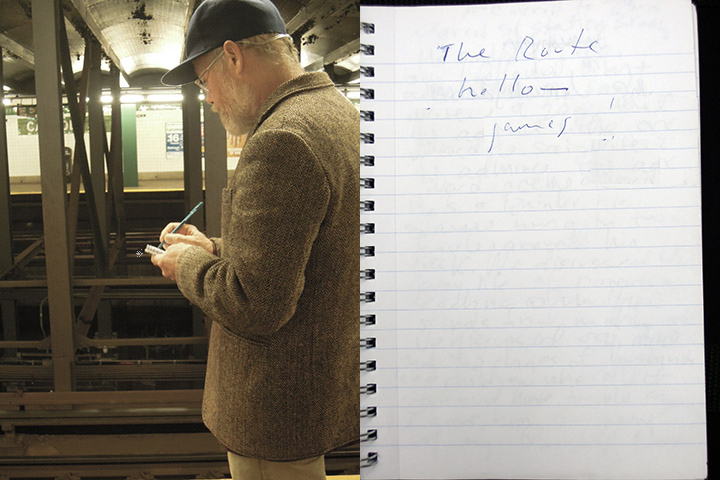 The Route
hello—
james !